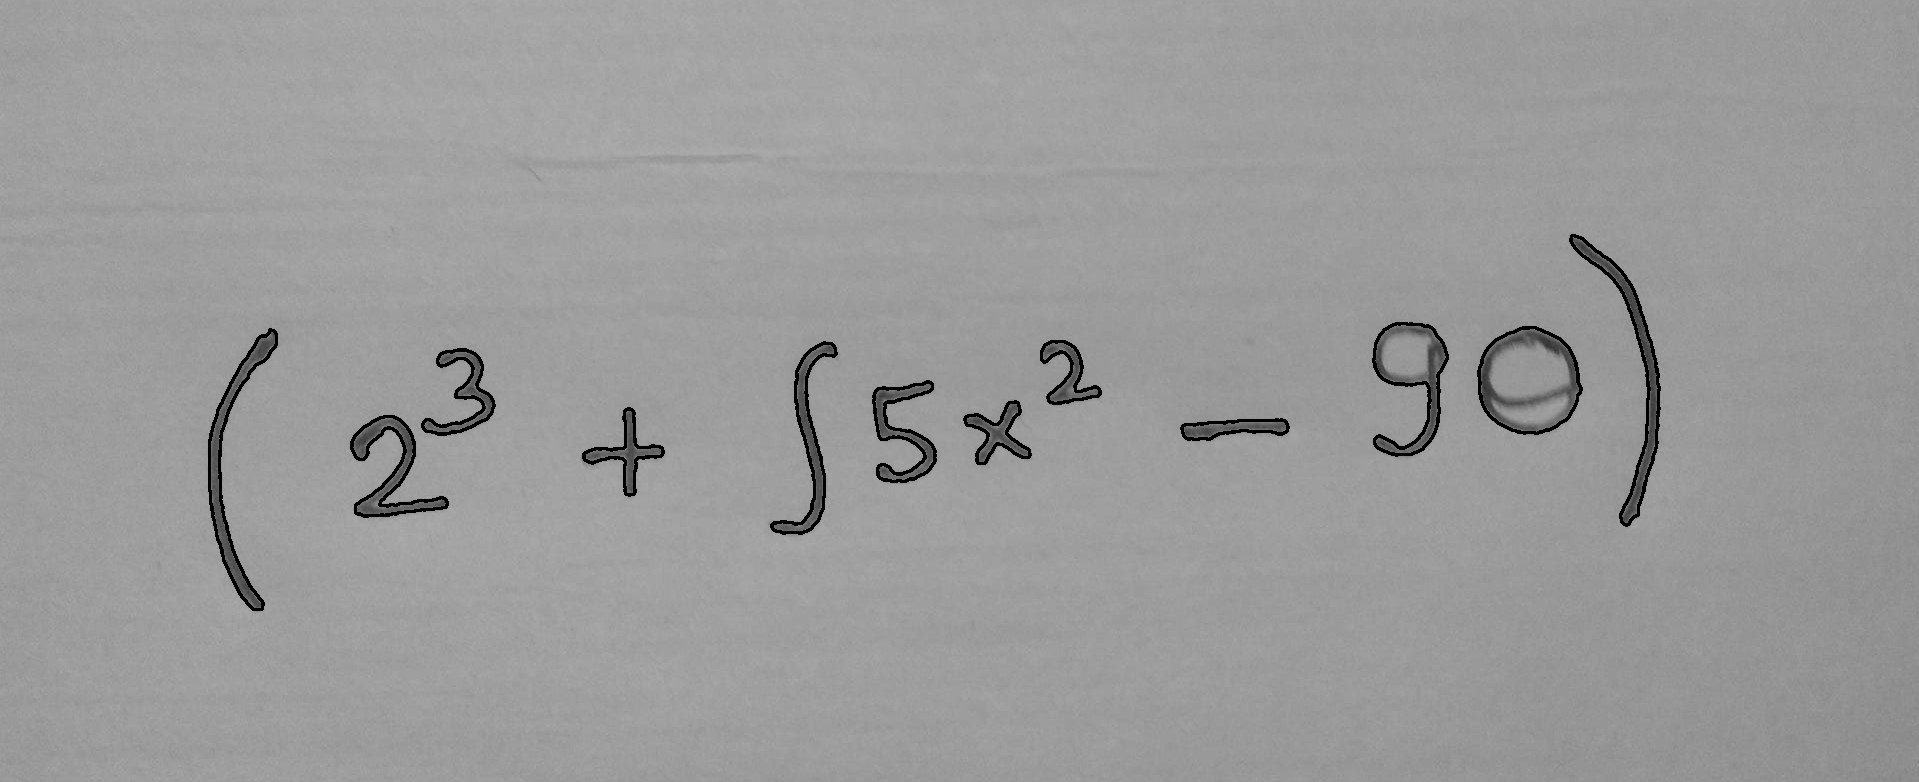 ( 2³ + ∫ 5x² − 9θ )